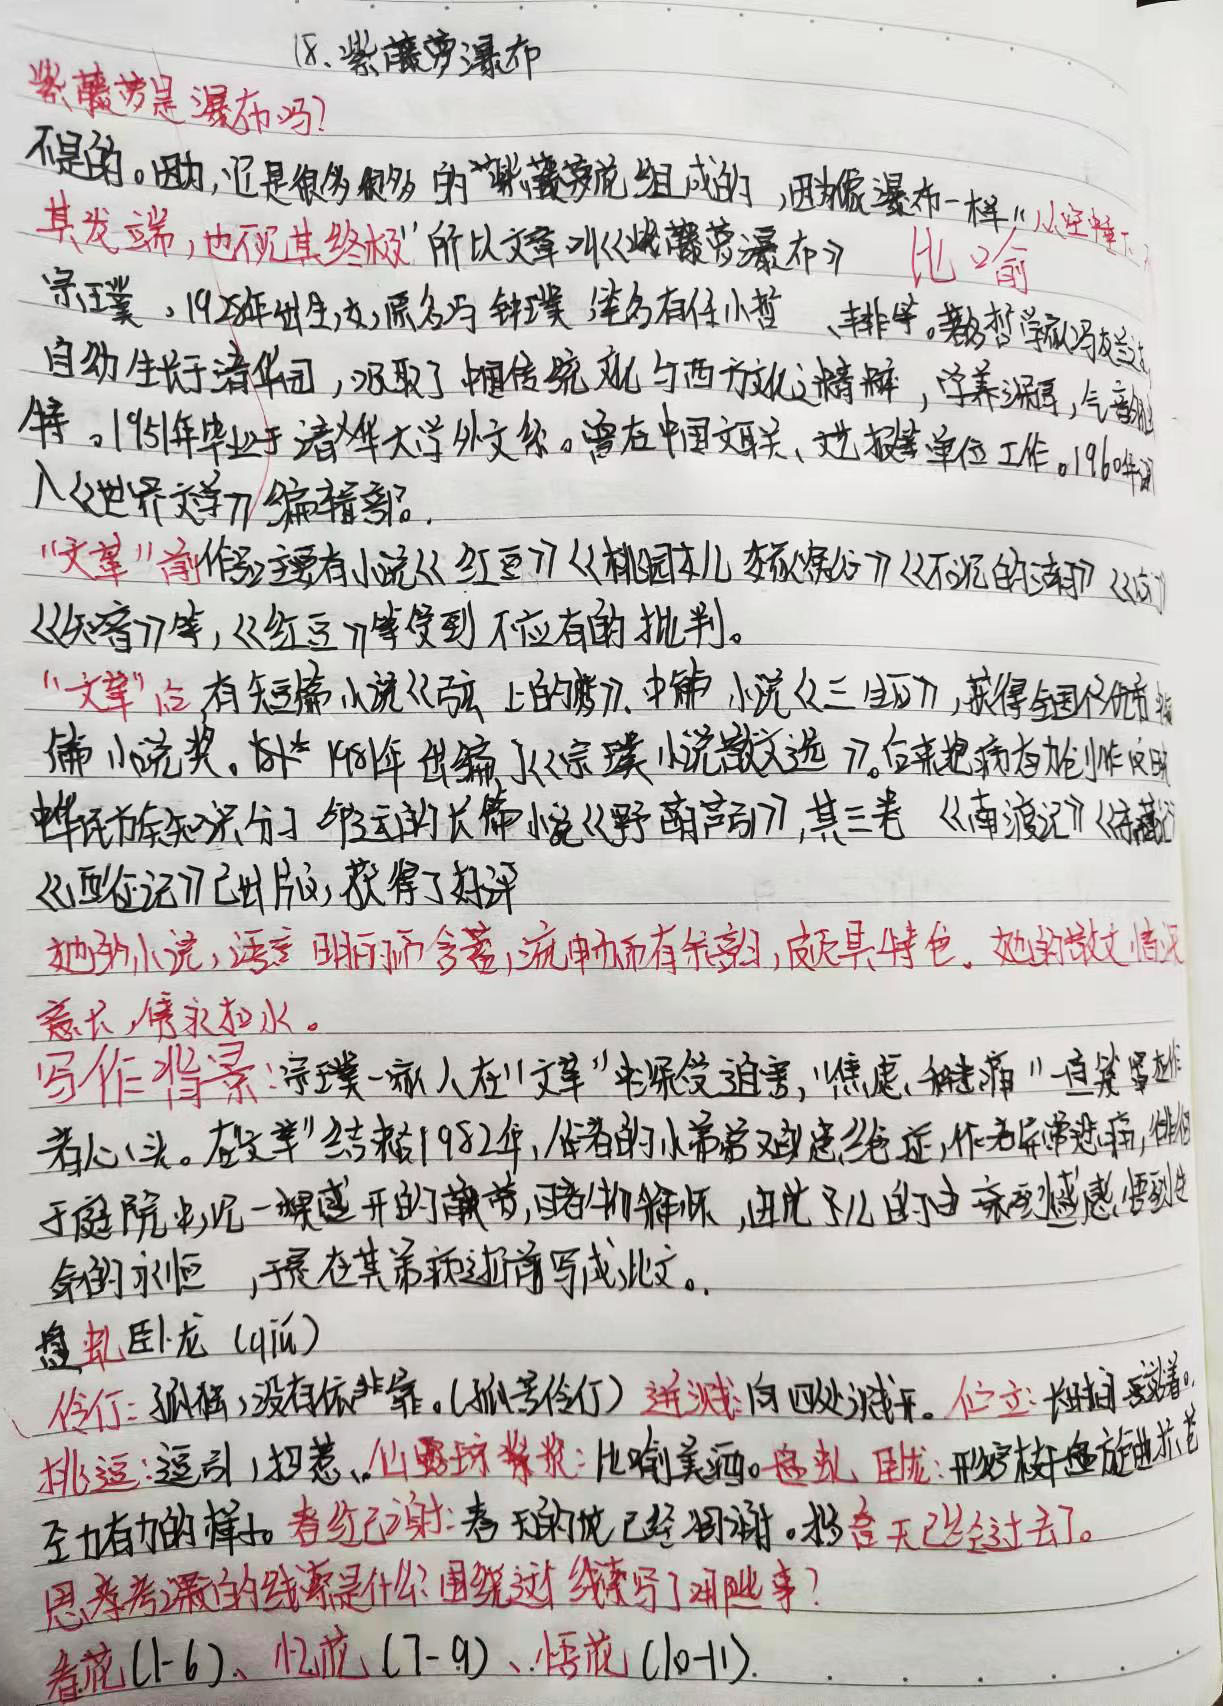 18、紫藤萝瀑布
紫藤萝是瀑布吗？
不是的。因为，它是很多很多的紫藤萝花组成的，因为像瀑布一样"，从空中垂下，
其发端，也不见其终极"所以文章叫《紫藤萝瀑布》 比喻
宗璞，1928年出生，女，原名冯钟璞 笔名有任小哲、丰非等。著名哲学家冯友兰之
自幼生长于清华园，汲取了中国传统文化与西方文化之精粹，学养深厚，气韵独
特。1951年毕业于清华大学外文系。曾在中国文联、文艺报等单位工作。1960年调
入《世界文学》编辑部。
"文革"前作品主要有小说《红豆》《桃园女儿嫁窝谷》《不沉的湖》《
《知音》等，《红豆》等受到不应有的批判。
"文革"后，有短篇小说《弦上的梦》、中篇小说《三生石》，获得全国优秀中
篇小说奖。1981年出编了《宗璞小说散文选》。后来抱病奋力创作反映
中华民族知识分子命运的长篇小说《野葫芦引》，其三卷 《南渡记》《东藏记
《西征记》已出版，获得了好评
她的小说，语言明丽而含蓄，流畅而有余韵，颇具特色。她的散文情深
意长，隽永如水。
写作背景：宗璞一家人在"文革"中深受迫害，"焦虑、悲痛"一直笼罩在作
者心头。在"文革"结束后1982年，作者的小弟弟又身患绝症，作者异常悲痛，徘徊
于庭院中，见一棵盛开的藤萝，睹物释怀，由花儿的由衰到盛，感悟到生
命的永恒，于是在其弟病逝前写成此文。
盘虬卧龙（qiú）
伶仃：孤独，没有依靠。（孤苦伶仃）迸溅：向四处溅开。伫立：长时间站着。
挑逗：逗引，招惹、仙露琼浆：比喻美酒。盘虬卧龙：形容枝干盘旋曲折苍
劲有力的样子。春红已谢：春天的花已经凋谢。指春天已经过去了。
思考：本课的线索是什么？围绕这个线索写了哪些事？
看花（1-6）、忆花（7-9）、悟花（10-11）.